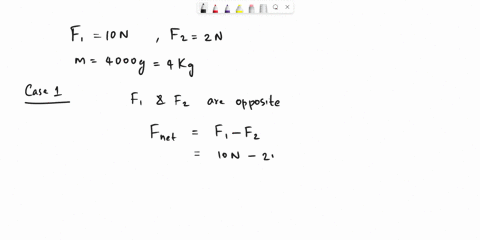 F₁ = 10N , F₂ = 2N
m = 4000g = 4Kg
Case 1
F₁ & F₂ are opposite
Fnet = F₁ - F₂
= 10N - 2